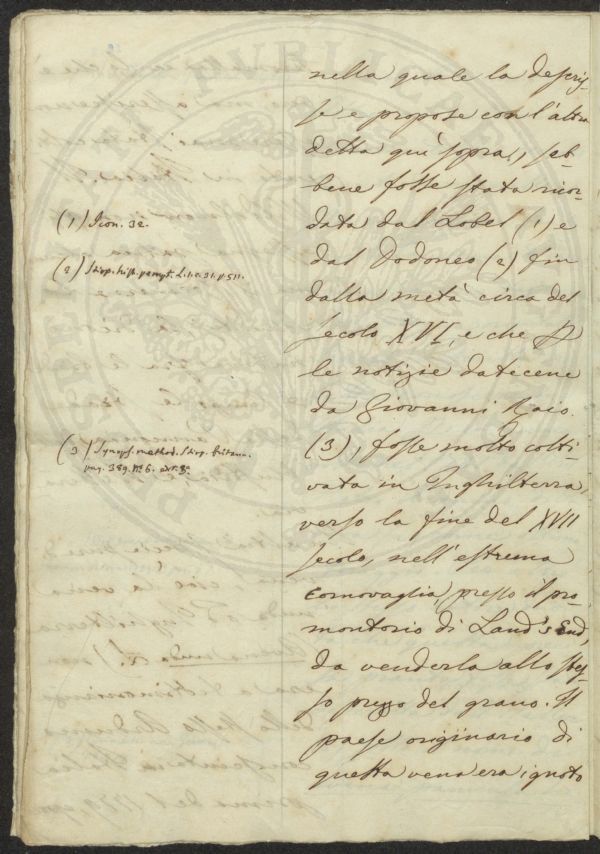 nella quale la descris-
se e propose con l'altra
detta quì sopra, seb-
bene fosse stata ricor-
data dal Lobel (1) e
dal Dodoneo (2) fin
dalla metà circa del
secolo XVI, e che p
le notizie datecene
da Giovanni Raio
(3), fosse molto colti-
vata in Inghilterra,
verso la fine del XVII
secolo, nell'estrema
Cornovaglia, presso il pro-
montorio di Land's End,
da venderla allo stes-
so prezzo del grano. Il
paese originario di
questa vena era ignoto
(1) Icon. 32.
(2) Stirp. hist. pempt. L. 1. c. 31. p. 511.
(3) Synops. method. Stirp. britann.
pag. 389. N.º 6. edit. 3ª